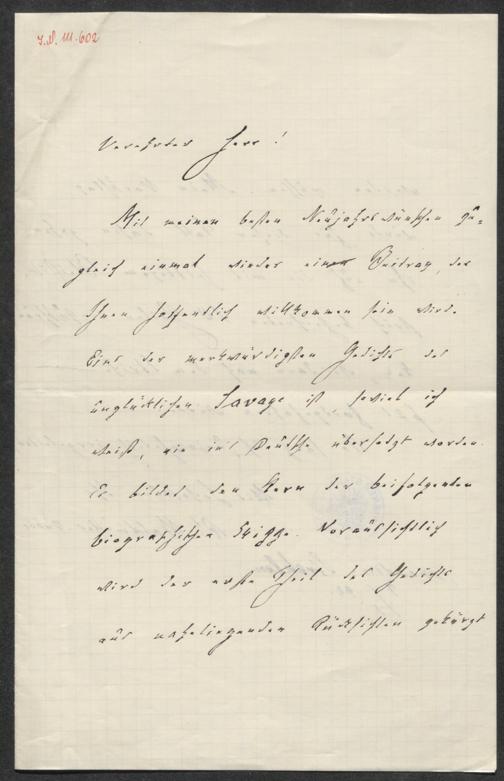 I.N. 111.602
Verehrter Herr!
Mit meinen besten Neujahrswünschen zu=
gleich einmal wieder einen Beitrag, der
Ihnen hoffentlich willkommen sein wird.
Eins der merkwürdigsten Gedichte des
unglücklichen Savage ist soviel ich
weiß, nie in's Deutsche übersetzt worden.
Es bildet den Kern der beifolgenden
biographischen Skizze. Voraussichtlich
wird der erste Theil des Gedichts
aus naheliegenden Rücksichten gekürzt